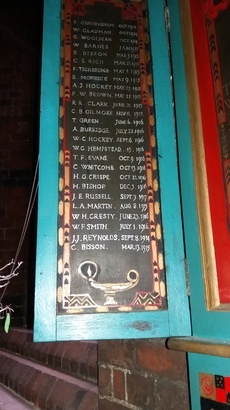 I. CUNNINGHAM, OCT
W. GLADMAN, OCT
G. WOOLMAN, OCT
W. BARNES, JAN
B. BISSON, MAR
C. E. RICH, MAR
F. TICKERIDGE, MAY
E. MORRICE, MAY 9. 1915
A. J. HOCKEY, MAY
F. W. BROWN, MAY
R. R. CLARK, JUNE 21. 1915
C. B. GILMORE, NOV
T. GREEN, JUNE 1916
A. BURRIDGE, JULY 22. 1916
W. C. HOCKEY, SEPT 6. 1916
W. G. HEMPSTEAD, 15. 1916
T. F. EVANS, OCT 9. 1916
C. WHITCOMB, OCT 1916
H. G. CRISPE, OCT 12. 1916
H. BISHOP, DEC 3. 1916
J. E. RUSSELL, SEPT 3. 1917
L. A. MARTIN, AUG 8.
W. H. GRESTY, JUNE 23. 1916
W. F. SMITH, JULY 1. 1916
J. J. REYNOLDS, SEPT 8.
C. BISSON, MAR 13. 1915